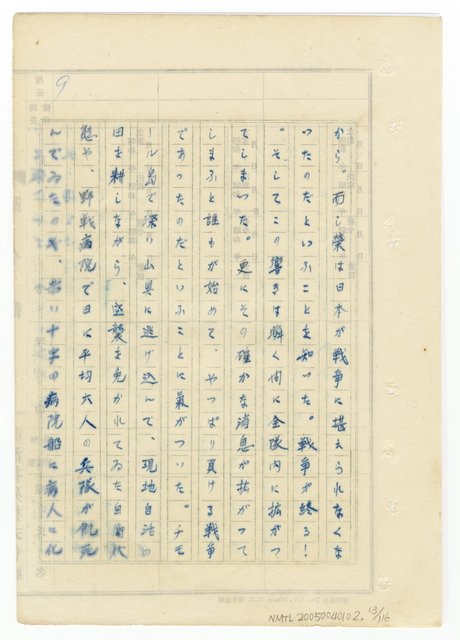 9
から。而し榮は日本が戰爭に堪えられなくな
つたのだといふことを知つた。戰爭が終る！
。そしてこの響きは瞬く間に全隊内に拡がつ
てしまつた。更にその確かな消息が拡がつて
しまふと誰もが始めて、やつぱり負ける戰爭
であつたのだといふことに氣がついた。チモ
ール島で深い山奥に逃げ込んで、現地自活の
田を耕しながら、空襲を免かれてゐた自 代
態や、野戰病院で日に平均六人の兵隊が飢死
んでゐたのや、赤い十字の病院船に病人に化
NMTL 20050040102, 13/116